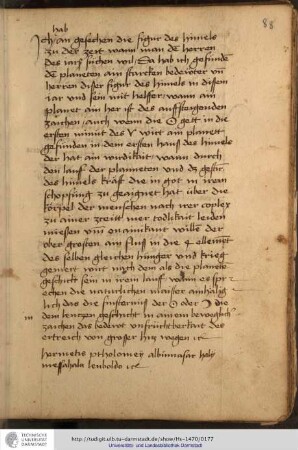 hab
88
Ich an gesechen die figur des himels
zu der zeit wann man de herren
des iars suchen wil Da hab ich gefunde
de planeten am starcken bedewter un
herren diser figur des himels in disem
iar und sein mit helffer wann am
planet am her ist des auffsteigenden
zaichen auch wenn die ☉ gett in die
ersten minut des ♈ wirt am planett
gefunden in dem ersten haus des himels
der hat am wann durch
den lauf der planneten und
des himels kraft die in got in irem
schopfung zu geaignet hat über die
körpel der menschen nach irer coplex
zu ainer zeitt mer todlikait leiden
müessen und wille der
ober grosten ain flus in die 4 element
des selben gleichen hunger und krieg
gemert wirt nach dem als die planeten
geschickt sein in irem lauf wann es spr
echen die naturlichen maister
lich das die finsternus der ☉ oder ☽ die
dem lentzen geschicht in ainem beweglich
zaichen das bedewt unfruchtberkait des
ertreich von groser hitz wegen etc
hermetis ptholomeus albumasar haly
messahala leupoldo etc
TECHNISCHE UNIVERSITÄT DARMSTADT
http://tudigit.ulb.tu-darmstadt.de/show/Hs-1470/0177
Universitäts- und Landesbibliothek Darmstadt